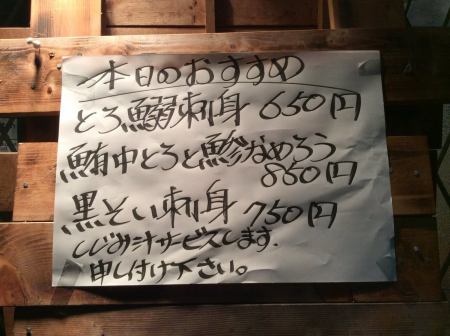 本日のおすすめ
とろ鰯刺身 650円
鮪中とろと鯵なめろう
850円
黒そい刺身 750円
しじみ汁サービスします.
申し付け下さい。